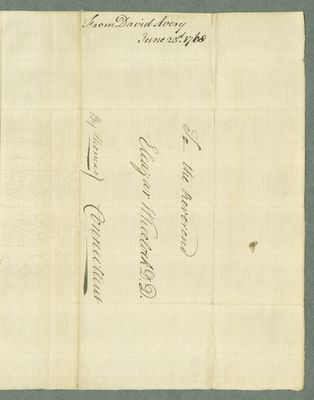 From David Avery
June 23d. 1768
To the Reverend
Eleazar Wheelock D.D.
Connecticut